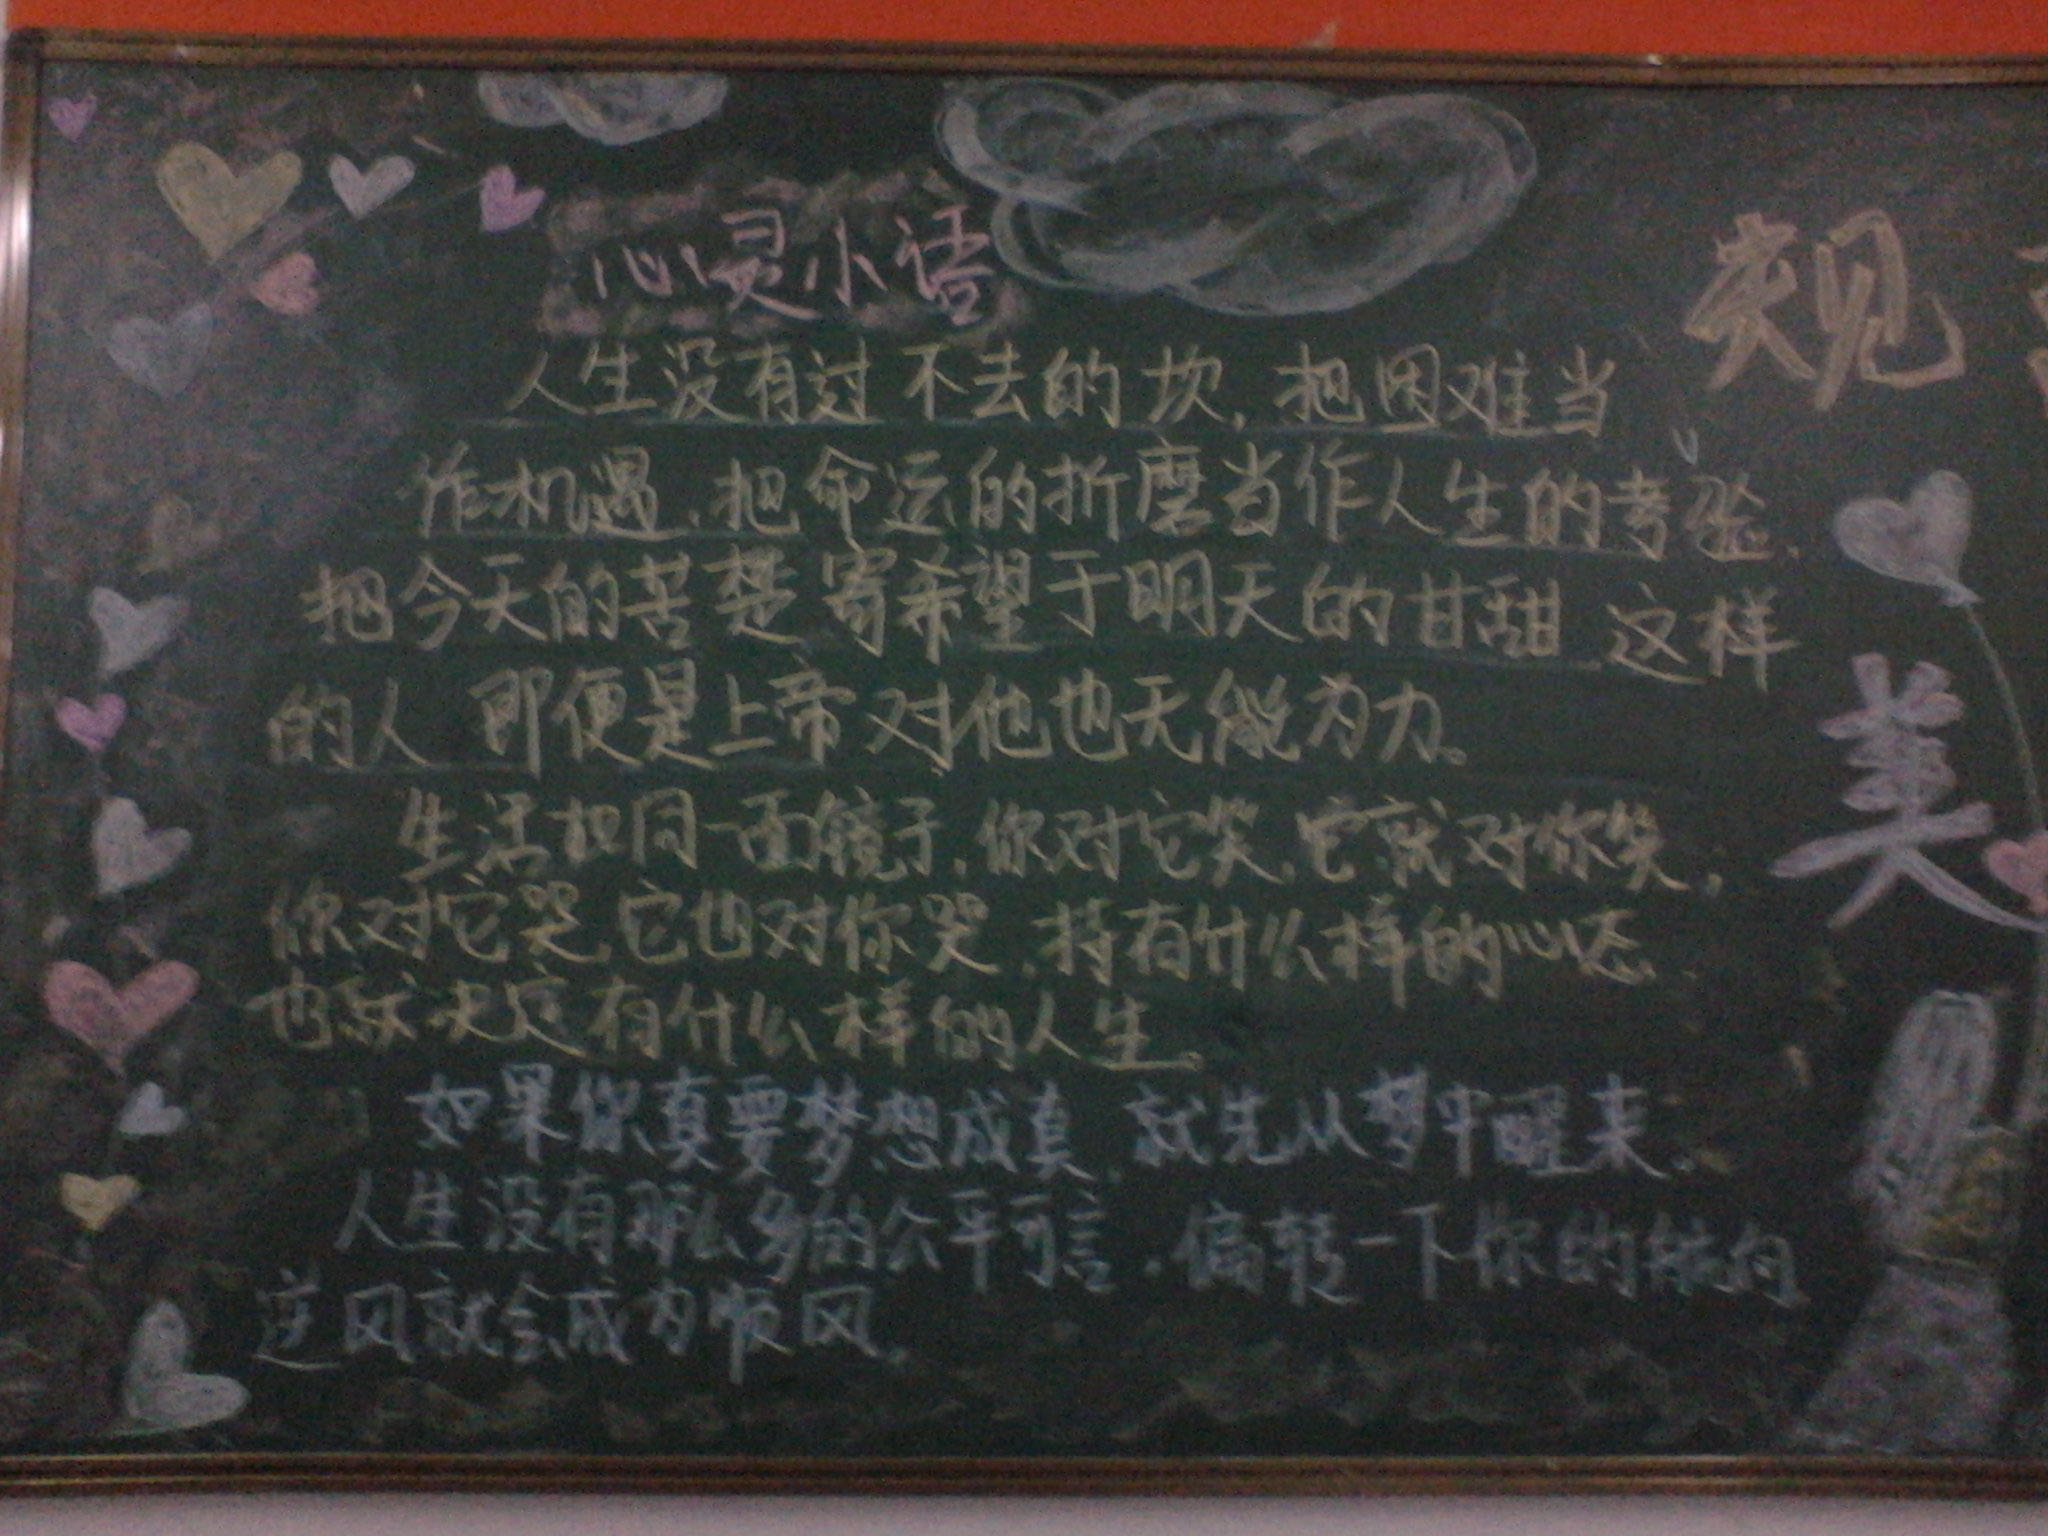 心灵小语
人生没有过不去的坎，把困难当
作机遇，把命运的折磨当作人生的考验，
把今天的苦楚寄希望于明天的甘甜 这样
的人 即便是上帝对他也无能为力。
生活如同一面镜子，你对它笑，它就对你笑，
你对它哭，它也对你哭，持有什么样的心态
也就决定有什么样的人生。
如果你真要梦想成真，就先从梦中醒来。
人生没有那么多的公平可言，偏转一下你的航向
逆风就会成为顺风。
规
美